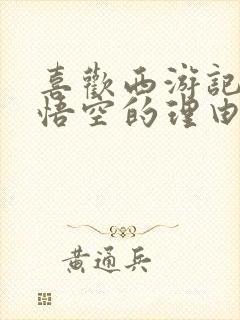 喜歡西游記
悟空的理由
黄通兵